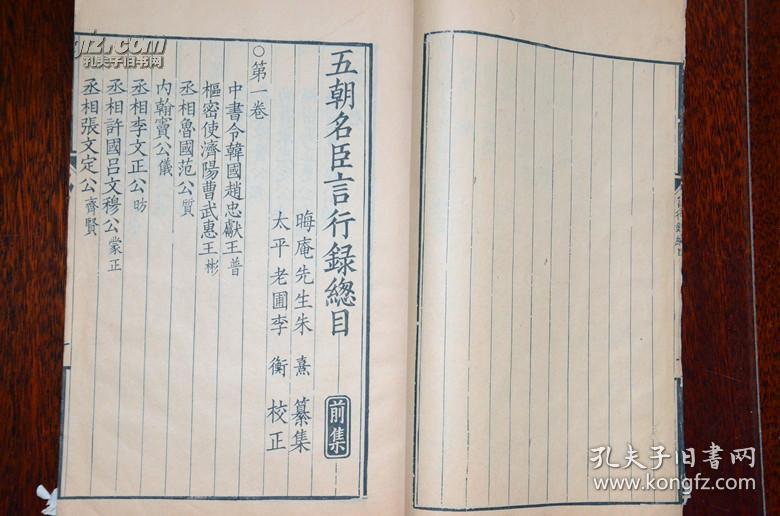 五朝名臣言行録總目 前集
晦庵先生朱熹纂集
太平老圃李衡校正
○第一卷
中書令韓國趙忠獻王普
樞密使濟陽曹武惠王彬
丞相魯國范公質
内翰竇公儀
丞相李文正公昉
丞相許國吕文穆公蒙正
丞相張文定公齊賢
孔夫子旧书网
孔夫子旧书网
www.kongfz.com